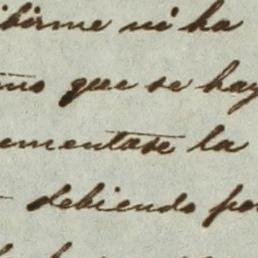 ibirme ni ha
mo que se hay
ementase la
debiendo por